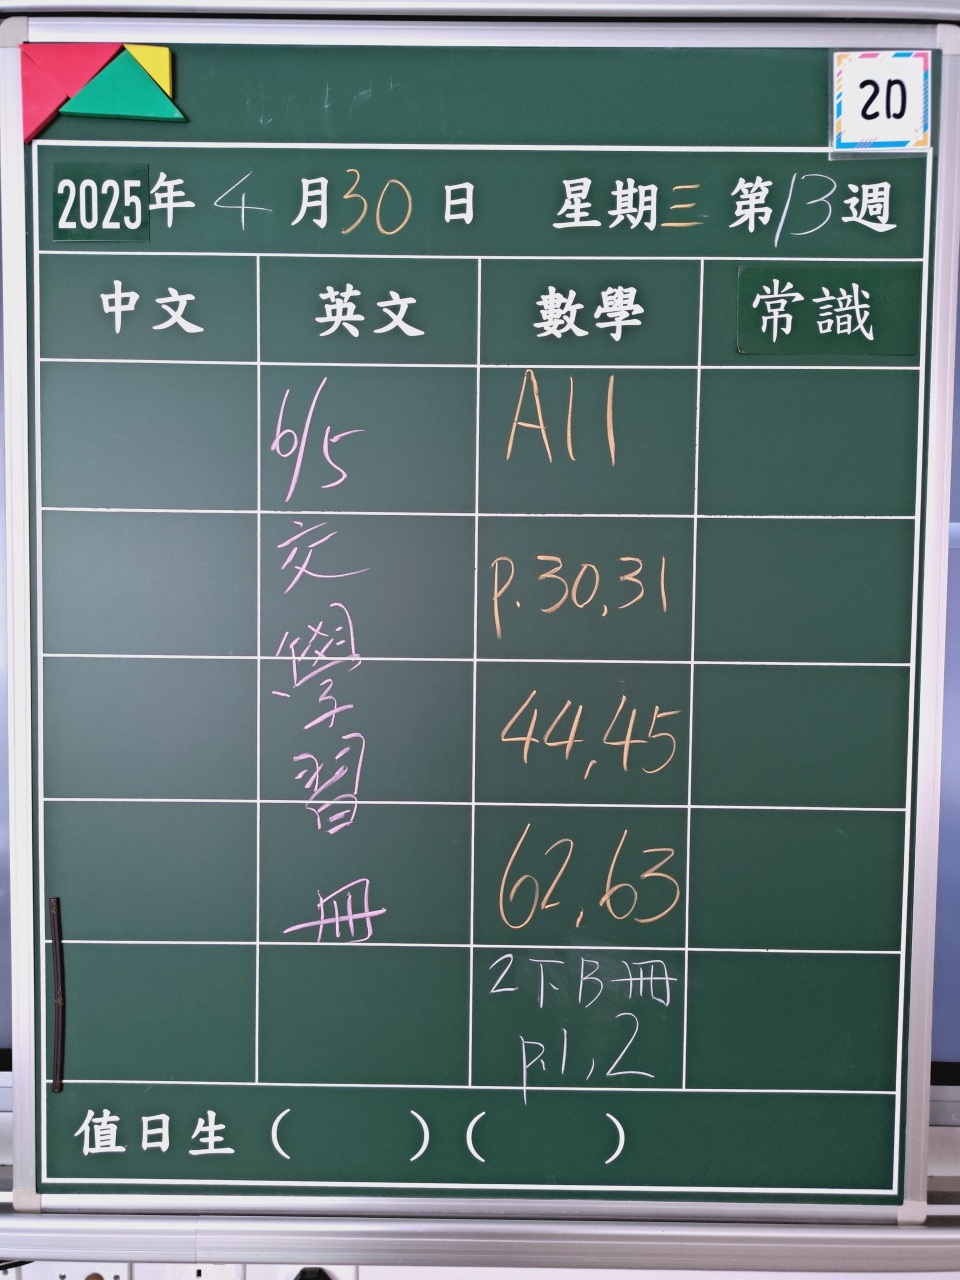 2D
2025年4月30日 星期三 第13週
中文 英文 數學 常識
6/5 A11
交 p.30,31
學 44,45
習 62,63
冊 2下B冊
p.1,2
值日生( )( )